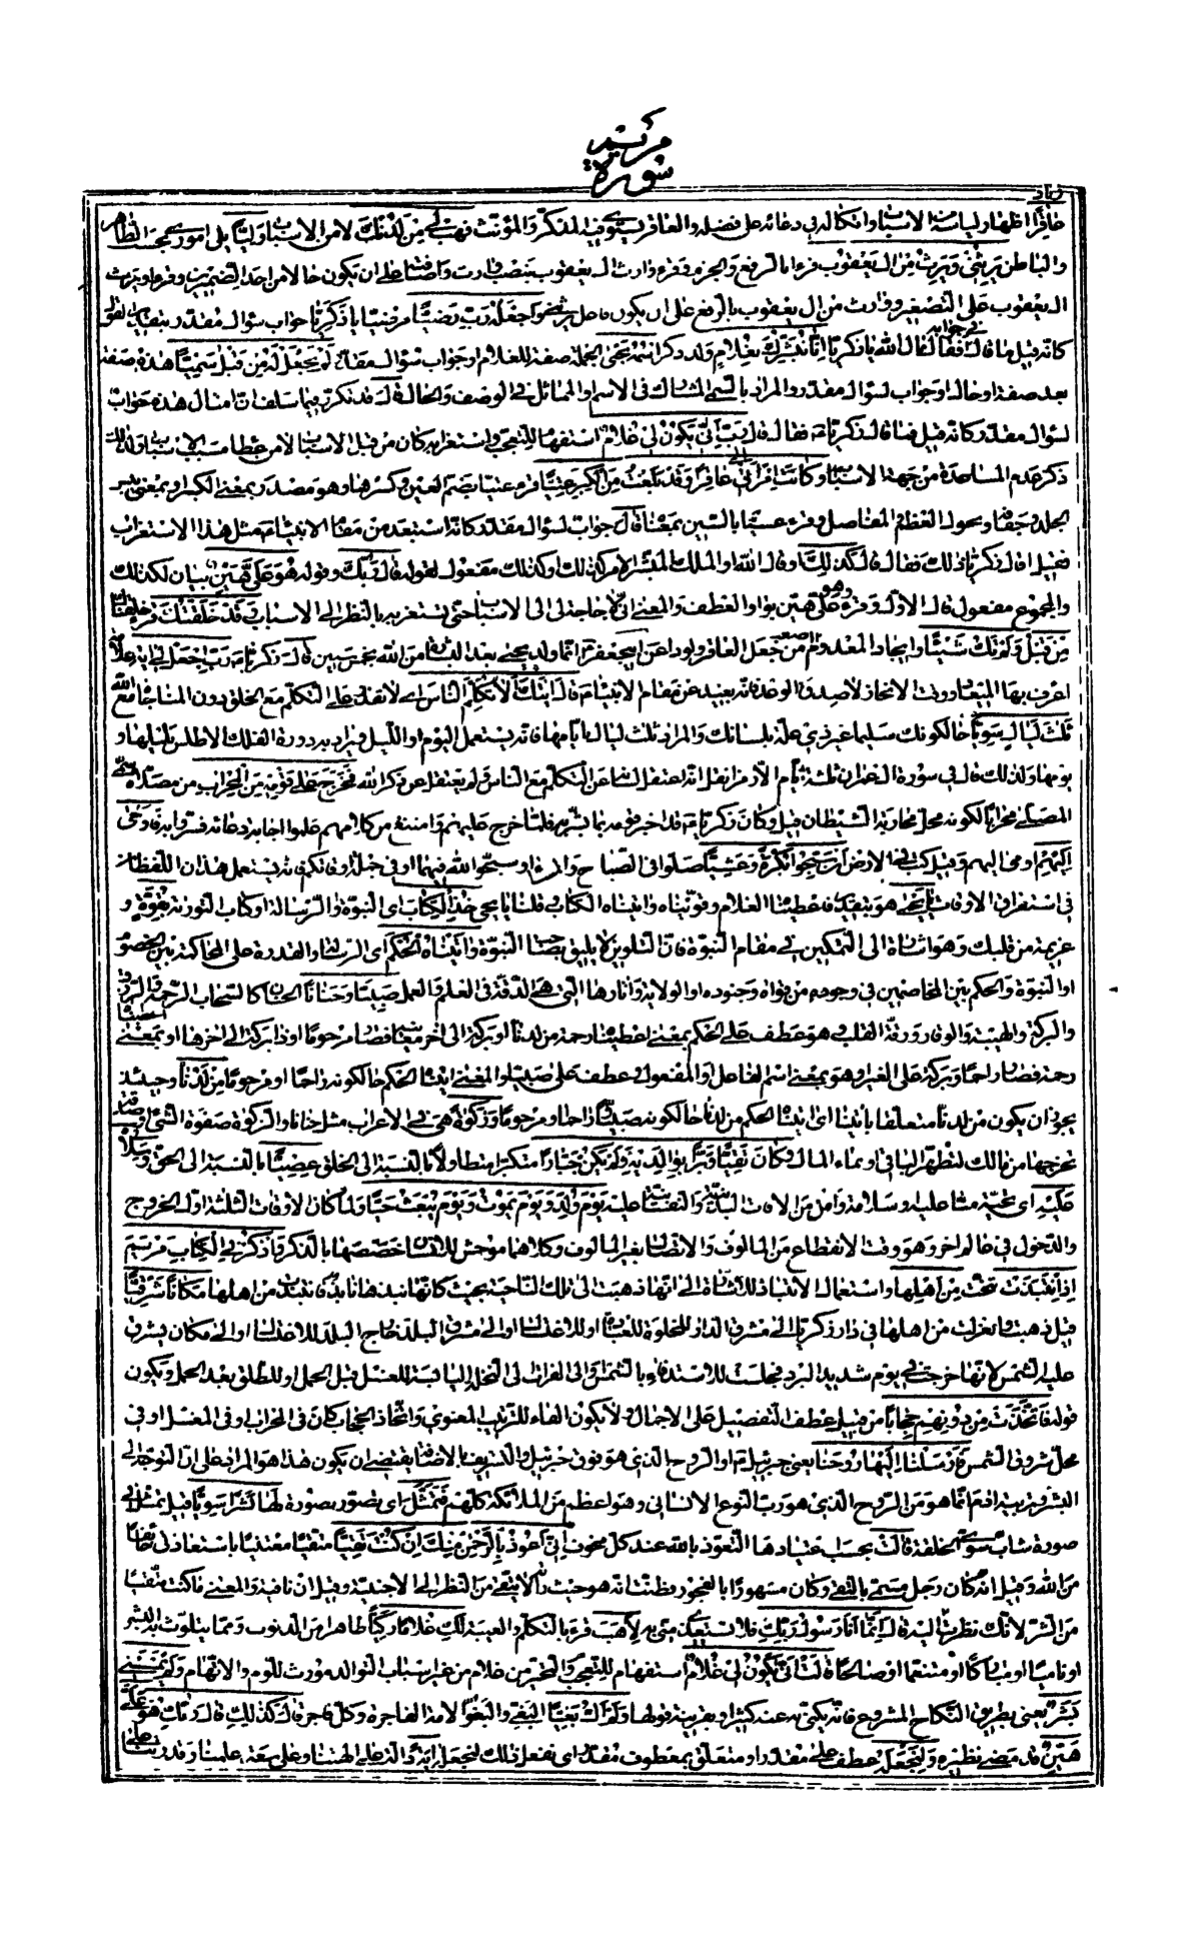 مريم
سورة
عاقرا اظهار لياسه من الاسباب واتكاله في دعائه على فضله والعاقر يستوي فيه المذكر والمؤنث فهب لي من لدنك لا من الاسباب وليا يلي اموري بحسب الظاهر
والباطن يرثني ويرث من ال يعقوب قرء بالرفع والجزم وقرء وارث ال يعقوب بنصب وارث واضافته على ان يكون حالا من احد الضميرين وقرء او يرث
ال يعقوب على التصغير ووارث من ال يعقوب بالرفع على ان يكون فاعل يرثني واجعله رب رضيا مرضيا يا زكريا جواب سؤال مقدر بتقدير القول
كانه قيل ما قال الله في جوابه فقال قال الله يا زكريا انا نبشرك بغلام ولد ذكر اسمه يحيى الجملة صفة للغلام او جواب سؤال مقدر لم نجعل له من قبل سميا هذه صفة
بعد صفة او حال او جواب لسؤال مقدر والمراد بالسمي المشارك في الاسم او المماثل في الوصف والحال قد تكرر فيما سلف ان امثال هذه جواب
لسؤال مقدر كانه قيل فما قال زكريا فقال قال رب انى يكون لي غلام استفهام للتعجب واستغرابه كان من قبل الاسباب لا من عطاء مسبب الاسباب ولذلك
ذكر عدم المساعدة من جهة الاسباب وكانت امراتي عاقرا وقد بلغت من الكبر عتيا قرء عتيا بضم العين وكسرها وهو مصدر بمعنى الكبر او بمعنى يبس
الجلد وجفافه ونحول العظم المفاصل وقرء عسيا بالسين بمعناه قال جواب لسؤال مقدر كانه استبعد من مقام الانبياء مثل هذا الاستغراب
فقيل اقال زكريا ذلك فقال قال كذلك او قال الله او الملك المبشر الامر كذلك او كذلك مفعول لقوله قال ربك وقوله هو علي هين بيان لكذلك
والمجموع مفعول قال الاول وقرء وهو علي هين بواو العطف والمعنى اني لا حاجة لي الى الاسباب حتى تستغربه بالنظر الى الاسباب وقد خلقتك قرء خلقناك
من قبل ولم تك شيئا وايجاد المعدوم اصعب من جعل العاقر ولودا عن ابي جعفر انما ولد يحيى بعد البشارة من الله بخمس سنين قال زكريا رب اجعل لي اية علامة
اعرف بها الميعاد ووقت الانجاز لا صدق الوعد فانه بعيد عن مقام الانبياء قال ايتك الا تكلم الناس اي لا تقدر على التكلم مع الخلق دون المناجاة مع الله
ثلث ليال سويا حال كونك سليما غير ذي علة بلسانك والمراد ثلث ليال بايامها فانه يستعمل اليوم او الليل ويراد به دورة الفلك الاطلس بليلها و
يومها ولذلك قال في سورة ال عمران ثلثة ايام الا رمزا نقل انه اعتقل لسانه عن التكلم مع الناس ولم يعتقل عن ذكر الله فخرج على قومه من المحراب من مصلاه سمي
المصلى محرابا لكونه محل محاربة الشيطان قيل وكان زكريا قد اخبر قومه بما بشر به فلما خرج عليهم وامتنع من كلامهم علموا اجابة دعائه فسروا به فاوحى
اليهم اومى اليهم وقيل كتب في الارض ان سبحوا بكرة وعشيا صلوا في الصباح والمساء او سبحوا الله فيهما او في جملة اوقاتكم فانه يستعمل هذان اللفظان
في استغراق الاوقات يا يحيى هو بتقدير فاعطيناه الغلام وقويناه واتيناه الكتاب وقلنا يا يحيى خذ الكتاب اي النبوة والرسالة او كتاب التورية بقوة و
عزيمة من قلبك وهو اشارة الى التمكين في مقام النبوة فان التلوين لا يليق بصاحب النبوة واتيناه الحكم اي الرسالة والقدرة على المحاكمة بين الخصوم
او النبوة والحكم بين المخاصمين في وجوده من قواه وجنوده او الولاية واثارها التي هي الدقة في العلم والعمل صبيا وحنانا الحنان كالسحاب الرحمة والرزق
والبركة والهيبة والوقار ورقة القلب وهو عطف على الحكم بمعنى اعطيناه رحمة من لدنا او بركة الى اخر معانيها فصار مرحوما او ذا بركة الى اخرها او بمعنى اعطيناه
رحمة فصار راحما وبركة على الغير او هو بمعنى اسم الفاعل او المفعول وعطف على صبيا والمعنى اتيناه الحكم حال كونه راحما او مرحوما من لدنا وحينئذ
يجوز ان يكون من لدنا متعلقا باتينا اي اتيناه الحكم من لدنا حال كونه صبيا وراحما ومرحوما وزكوة هي في الاعراب مثل حنانا والزكوة صفوة الشيء وقدر
تخرجها من مالك لتطهر الباقي ونماء المال وكان تقيا وبرا بوالديه ولم يكن جبارا متكبرا متطاولا بالنسبة الى الخلق عصيا بالنسبة الى الحق وسلام
عليه اي تحية منا عليه او سلامة وامن من الافات البدنية والنفسانية عليه يوم ولد ويوم يموت ويوم يبعث حيا ولما كان الاوقات الثلثة اول الخروج
والدخول في عالم اخر وهو وقت الانقطاع من المالوف والاتصال بغير المالوف وكلاهما موحش للانسان خصصها بالذكر واذكر في الكتاب مريم
اذ انتبذت تنحت من اهلها واستعمال الانتباذ للاشارة الى انها ذهبت الى تلك الناحية بحيث كانها نبذها نابذ فانتبذت من اهلها مكانا شرقيا
قيل ذهبت واعتزلت من اهلها في دار زكريا الى مشرق الدار للخلوة للعبادة او للاغتسال او الى مشرق البلد خارج البلد للاغتسال او الى مكان يشرق
عليه الشمس لانها خرجت في يوم شديد البرد فجلست للاستدفاء بالشمس او الى الفرات الى النخلة اليابسة للغسل قبل الحمل او للطلق بعد الحمل ويكون
قوله فاتخذت من دونهم حجابا من قبيل عطف التفصيل على الاجمال او لا يكون الفاء للترتيب المعنوي واتخاذ الحجاب كان في المحراب او في المغسل او في
محل شروق الشمس فارسلنا اليها روحنا يعني جبرئيل او الروح الذي هو فوق جبرئيل والتشريف بالاضافة يقتضي ان يكون هذا هو المراد على ان التوجه الى
البشر وتربيتهم انما هو من الروح الذي هو رب النوع الانساني وهو اعظم من الملائكة كلهم فتمثل اي تصور بصورة لها بشرا سويا قيل تمثل في
صورة شاب سوي الخلقة قالت بحسب اعتيادها التعوذ بالله عند كل مخوف اني اعوذ بالرحمن منك ان كنت تقيا متقيا معتنيا باستعاذتي
من الله وقيل انه كان رجل مسمى بالتقي وكان مشهورا بالفجور فظنت انه هو حيث راته لا يتقي من النظر الى الاجنبية وقيل ان نافية والمعنى ما كنت متقيا
من الشر لانك نظرت الي قال انما انا رسول ربك فلا تستعيذي مني لاهب قرء بالتكلم والغيبة لك غلاما زكيا طاهرا من الذنوب ومما يتلوث به البشر
او ناميا او متنعما او صالحا قالت انى يكون لي غلام استفهام للتعجب والتحير من غلام من غير اسباب التوالد مورث للوم والاتهام ولم يمسسني
بشر يعني بطريق النكاح المشروع فانه يكنى به عنه كثيرا وبقرينة قولها ولم اك بغيا البغي والبغو الامة الفاجرة وكل فاجرة قال كذلك قال ربك هو علي
هين قد مضى نظيره ولنجعله عطف على مقدر او متعلق بمعطوف مقدر اي نفعل ذلك لنجعله اية دالة على الهيتنا وعلى سعة علمنا وقدرتنا